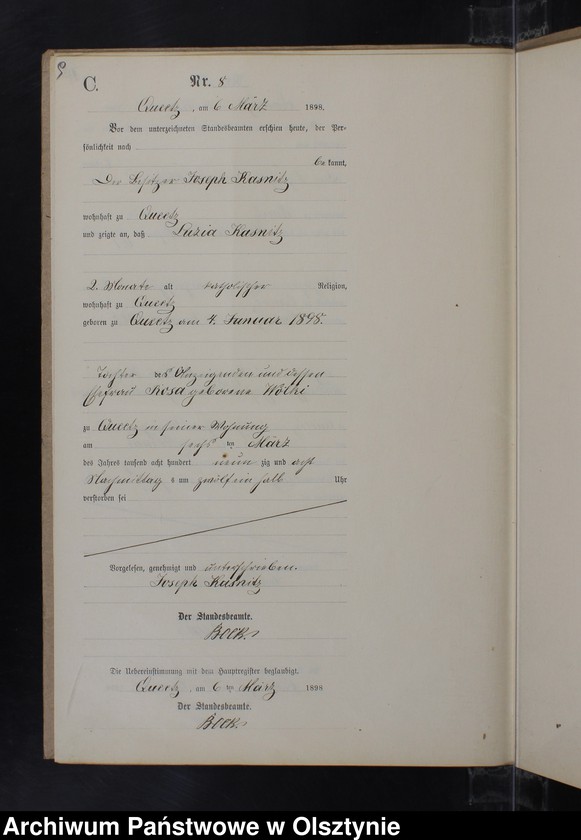 C.
Nr. 8
Queetz, am 6 März 1898.
Vor dem unterzeichneten Standesbeamten erschien heute, der Per-
sönlichkeit nach
be kannt,
Der Besitzer Joseph Kasnitz
wohnhaft zu Queetz
und zeigte an, daß Luzia Kasnitz
2. Monate alt katholischer Religion,
wohnhaft zu Queetz
geboren zu Queetz am 4. Januar 1898.
Tochter des Anzeigenden und dessen
Ehefrau Rosa geborene Wölki
zu Queetz in seiner Wohnung
am sechs ten März
des Jahres tausend acht hundert neun zig und acht
Nachmittag s um zwölfeinhalb Uhr
verstorben sei
Vorgelesen, genehmigt und unterschrieben.
Joseph Kasnitz
Der Standesbeamte.
Beck.
Die Uebereinstimmung mit dem Hauptregister beglaubigt.
Queetz, am 6 ten März 1898
Der Standesbeamte.
Beck.
Archiwum Państwowe w Olsztynie